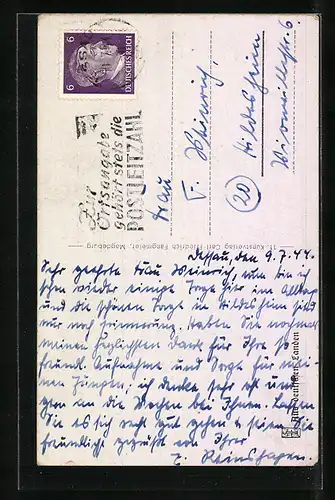 6
6
DEUTSCHES REICH
Zur
Ortsangabe
gehört stets die
POSTLEITZAHL
Frau
F. Weinrich,
(20) Hildesheim
11. Kunstverlag Carl Friedrich Fangmeier, Magdeburg
Dessau, den 9.7.44.
Sehr geehrte Frau Weinrich, nun bin ich
schon wieder einige Tage hier im Alltag
und die schönen Tage in Hildesheim sind
nur noch Erinnerung. Haben Sie nochmals
meinen herzlichsten Dank für Ihre so
freundl. Aufnahme und Sorge für meinen
Jungen; ich denke sehr oft und
gern an die Wochen bei Ihnen. Lassen
Sie es sich recht gut gehen & seien Sie
freundlichst gegrüßt von Ihrer
Reinshagen.